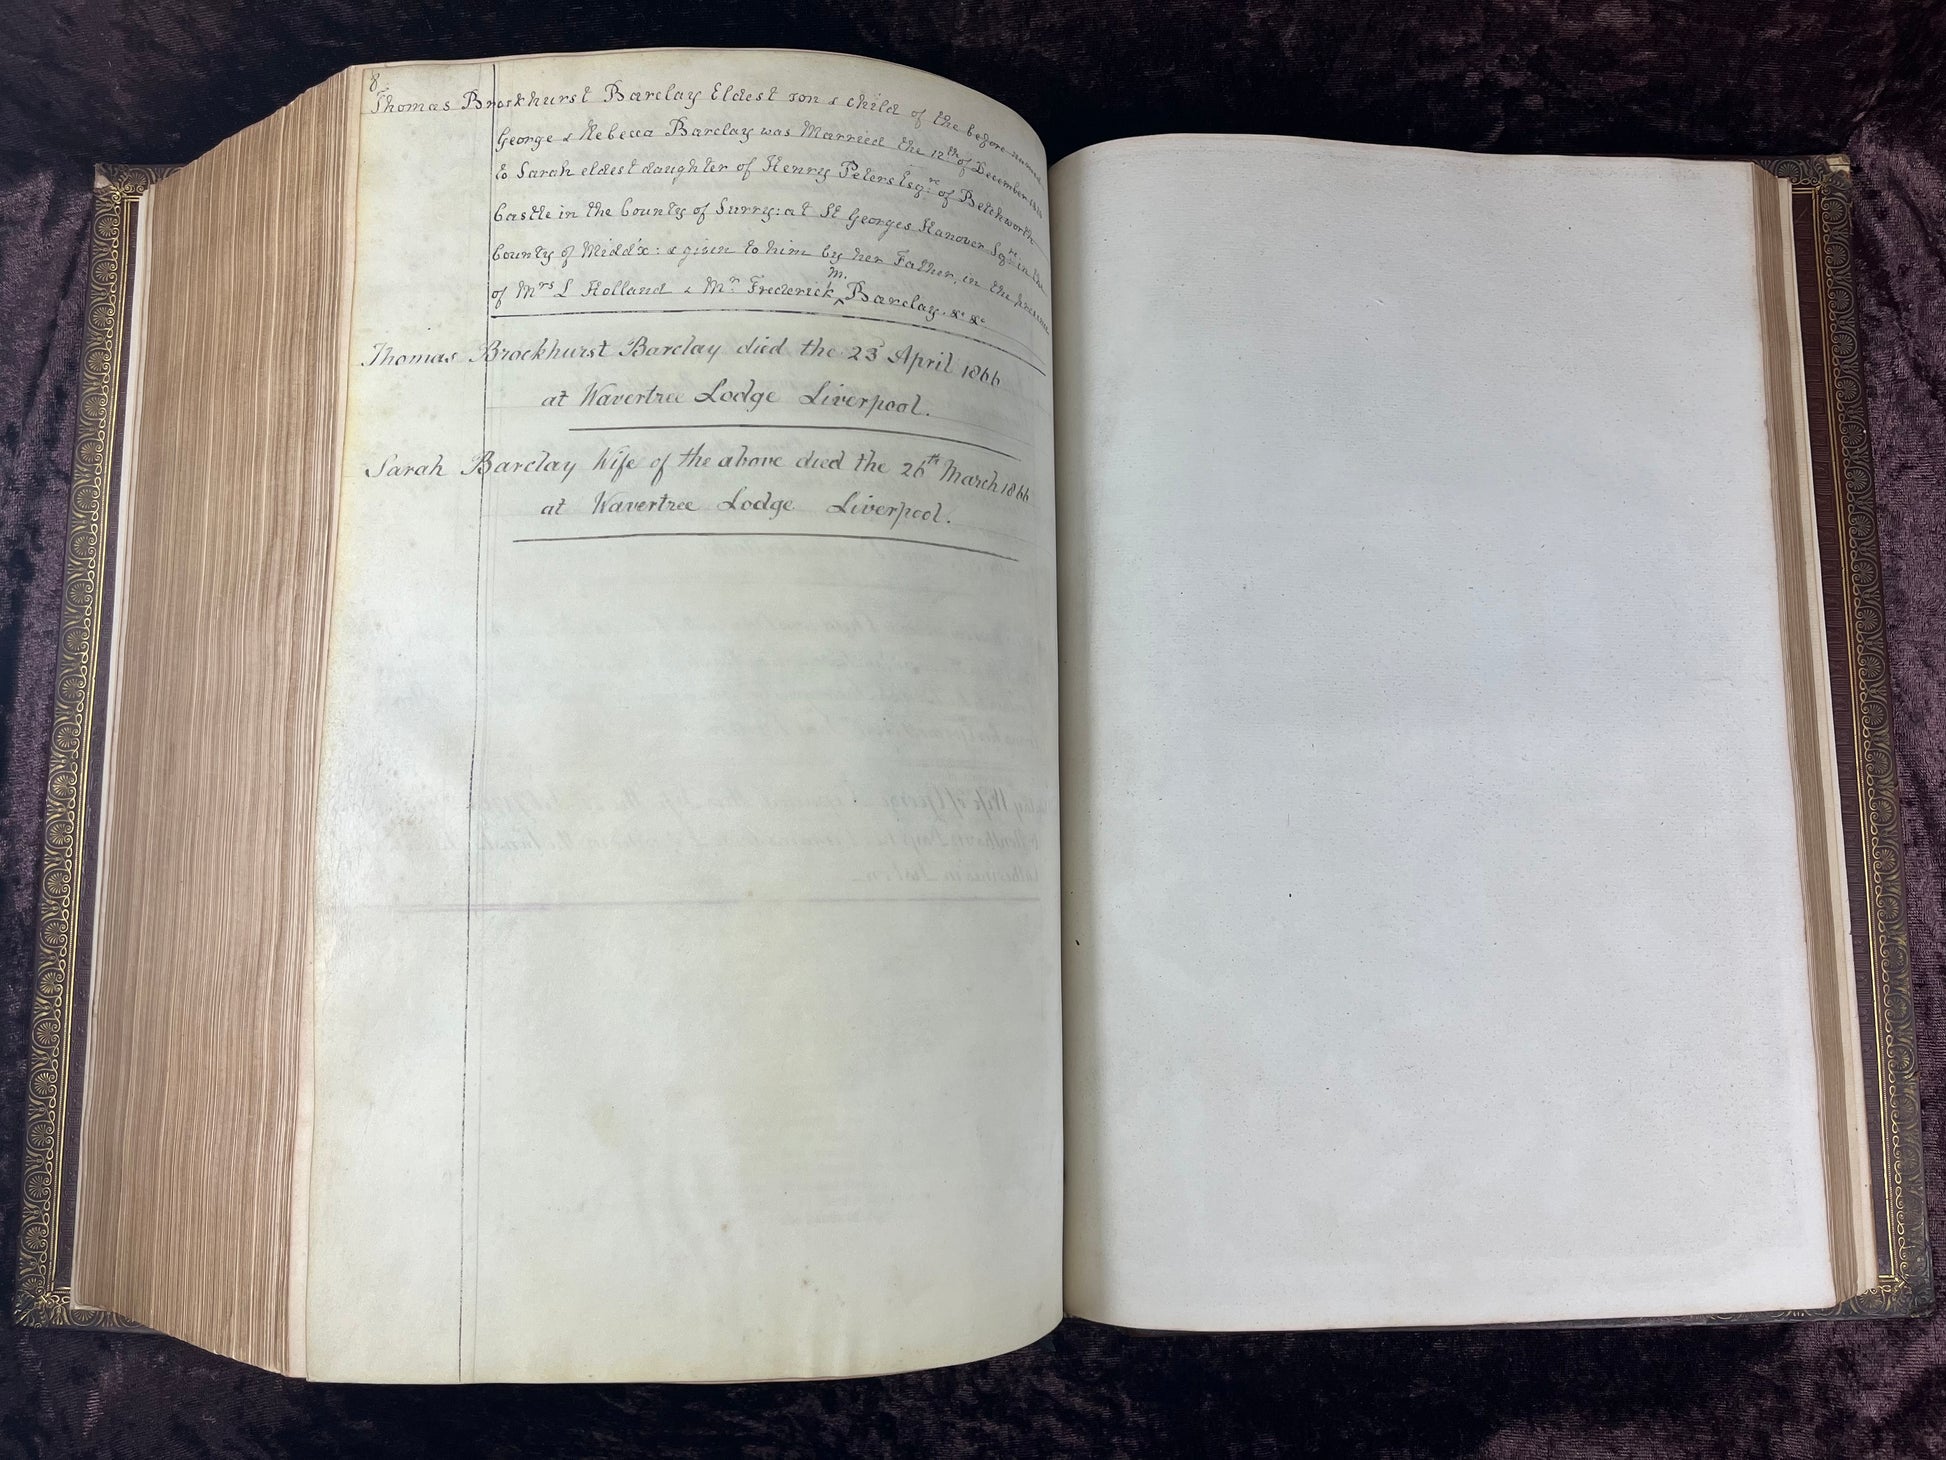 8
Thomas Brockhurst Barclay Eldest son & child of the before named
George & Rebecca Barclay was Married the 12th of December
to Sarah eldest daughter of Henry Peters Esqre of Betchworth
Castle in the County of Surry: at St Georges Hanover Sqre in the
County of Middx: & given to him by her Father, in the presence
of Mrs L Holland & Mr Frederick M. Barclay. &c &c
Thomas Brockhurst Barclay died the 23 April 1866
at Wavertree Lodge Liverpool.
Sarah Barclay Wife of the above died the 26th March 1866
at Wavertree Lodge Liverpool.